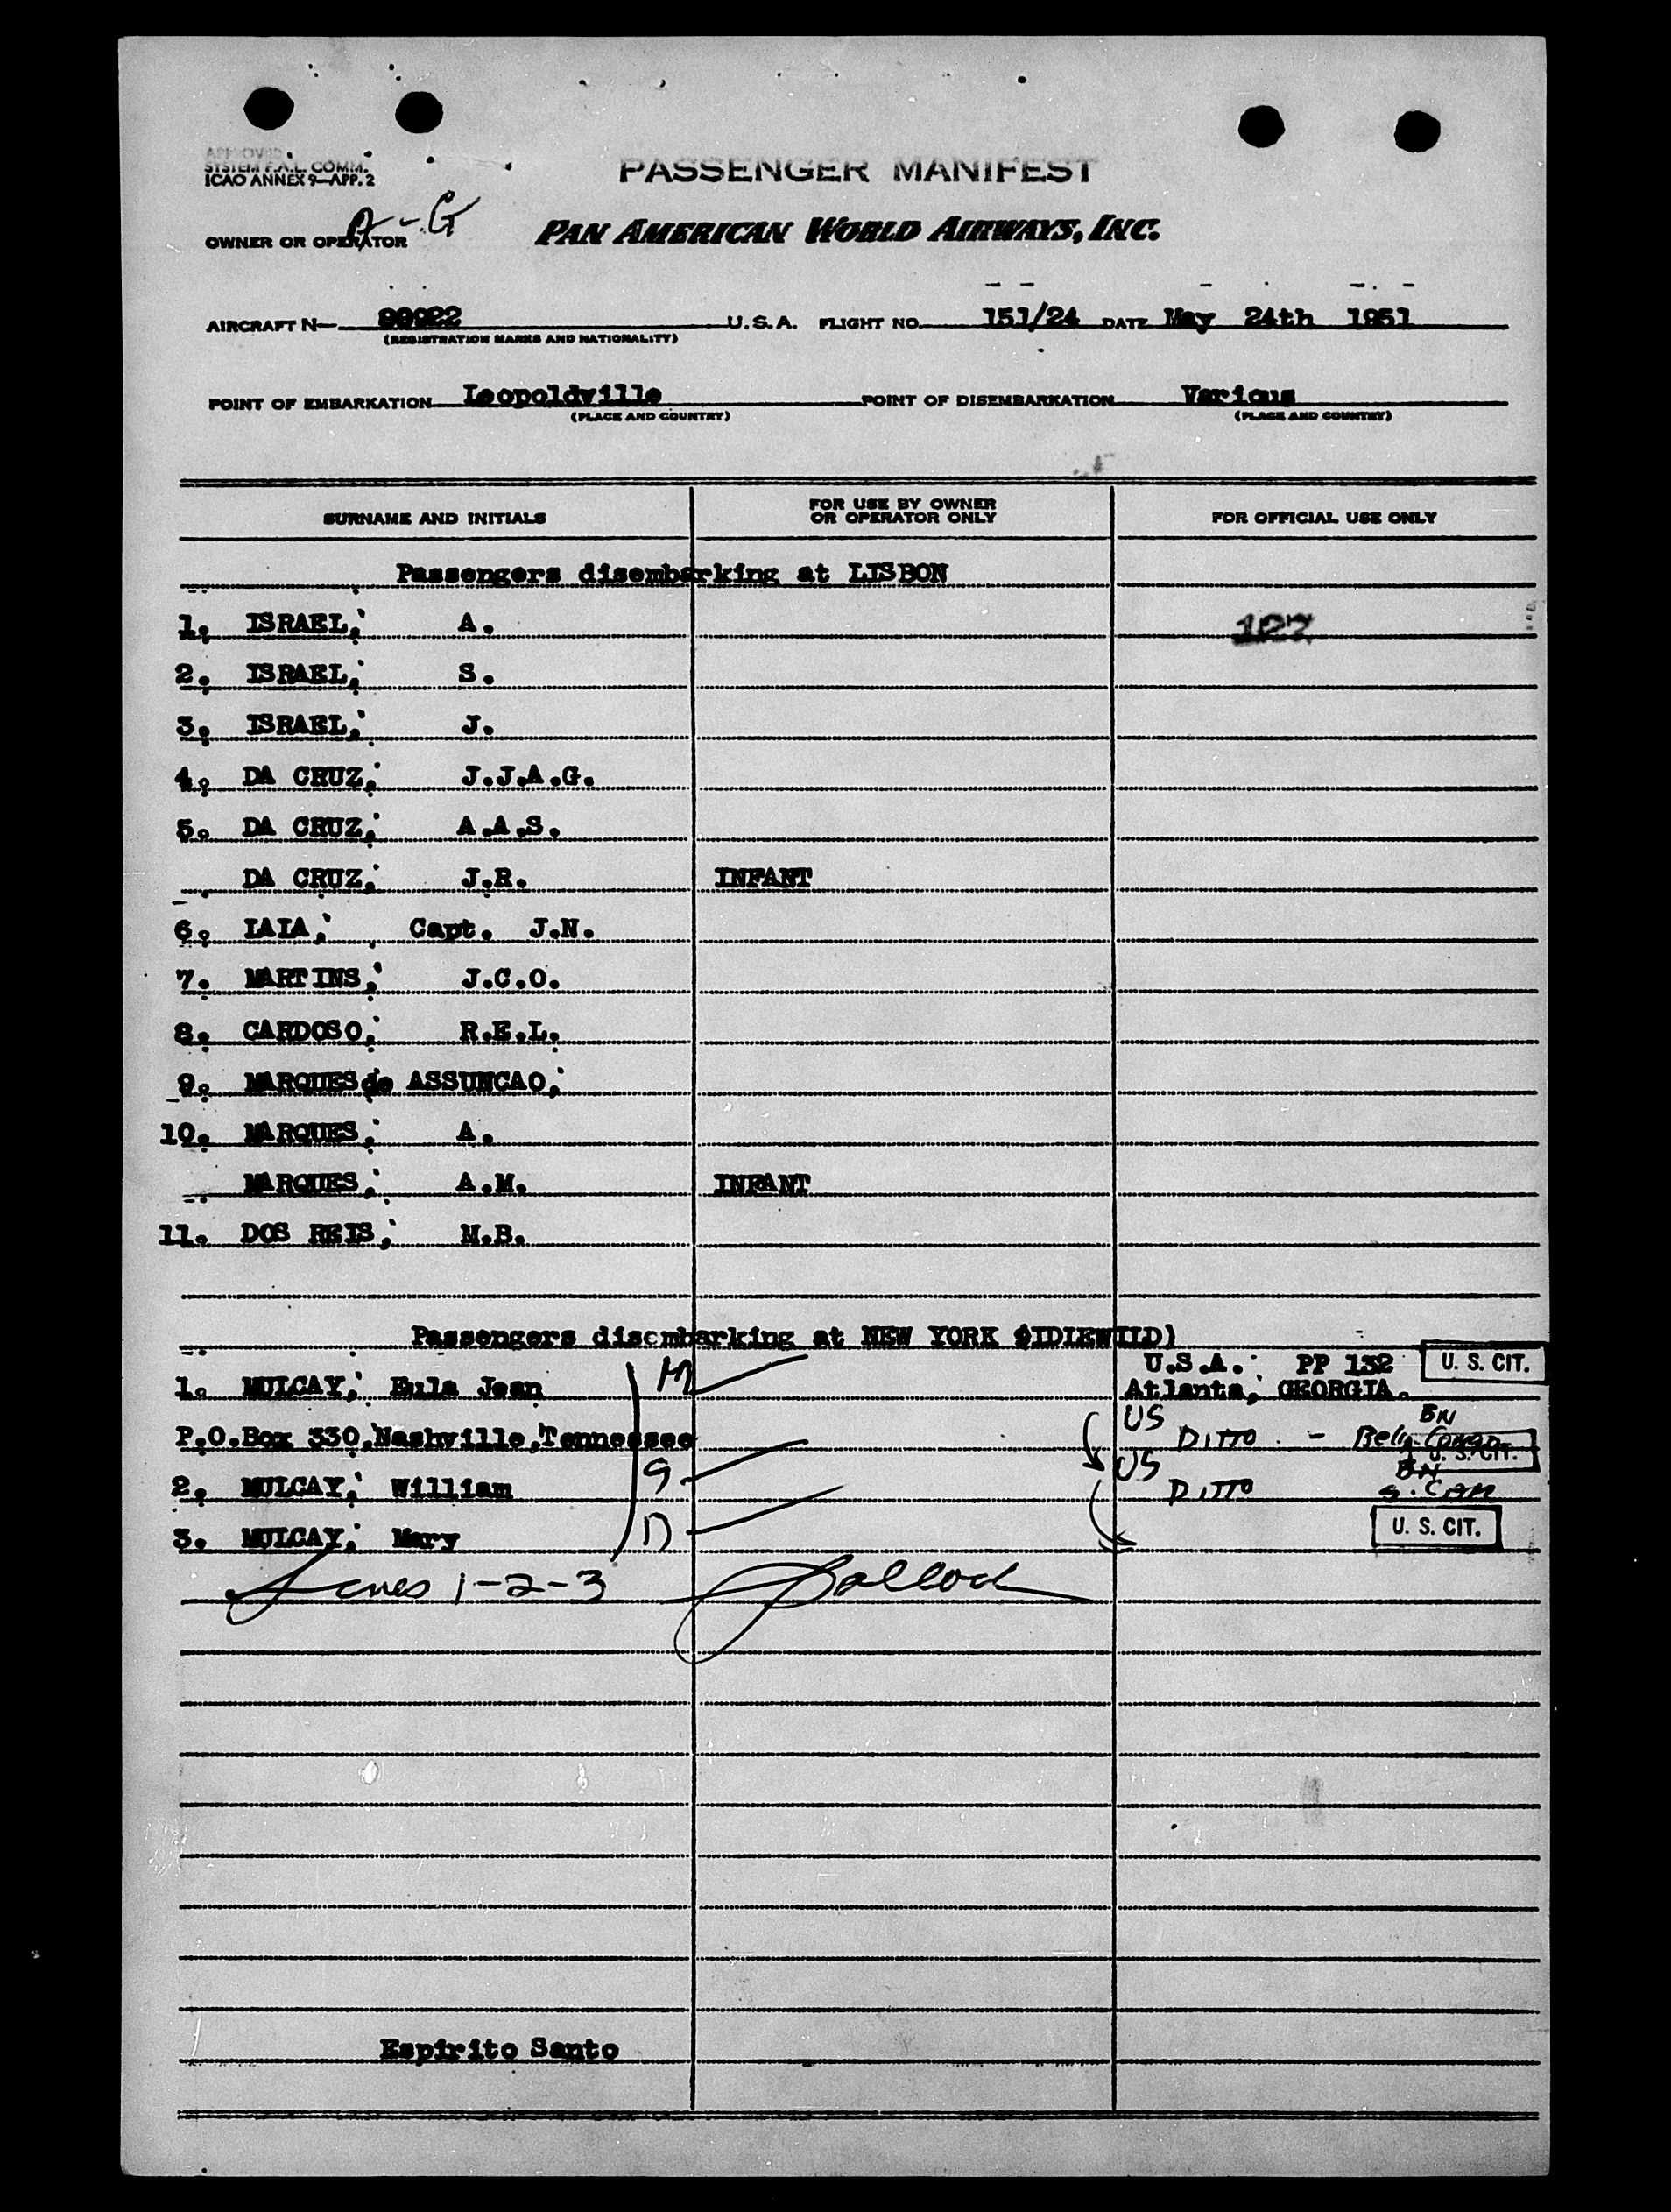 APPROVED
SYSTEM F.A.L. COMM.
ICAO ANNEX 9—APP. 2
PASSENGER MANIFEST
OWNER OR OPERATOR PAN AMERICAN WORLD AIRWAYS, INC.
AIRCRAFT N— 88922 U.S.A. FLIGHT NO. 151/24 DATE May 24th 1951
(REGISTRATION MARKS AND NATIONALITY)
POINT OF EMBARKATION Leopoldville POINT OF DISEMBARKATION Various
(PLACE AND COUNTRY) (PLACE AND COUNTRY)
SURNAME AND INITIALS FOR USE BY OWNER OR OPERATOR ONLY FOR OFFICIAL USE ONLY
Passengers disembarking at LISBON
1. ISRAEL, A. 127
2. ISRAEL, S.
3. ISRAEL, J.
4. DA CRUZ, J.J.A.G.
5. DA CRUZ, A.A.S.
DA CRUZ, J.R. INFANT
6. IAIA, Capt. J.N.
7. MARTINS, J.C.O.
8. CARDOSO, R.E.L.
9. MARQUES de ASSUNCAO,
10. MARQUES, A.
MARQUES, A.M. INFANT
11. DOS REIS, M.B.
Passengers disembarking at NEW YORK (IDLEWILD)
U.S.A. PP 132 U. S. CIT.
1. MULCAY, Eula Jean M Atlanta, GEORGIA.
P.O.Box 330,Nashville,Tennessee US DITTO - Belg. Congo BN U. S. CIT.
2. MULCAY, William S US DITTO BN S. CAR
3. MULCAY, Mary D U. S. CIT.
Lines 1-2-3
Espirito Santo